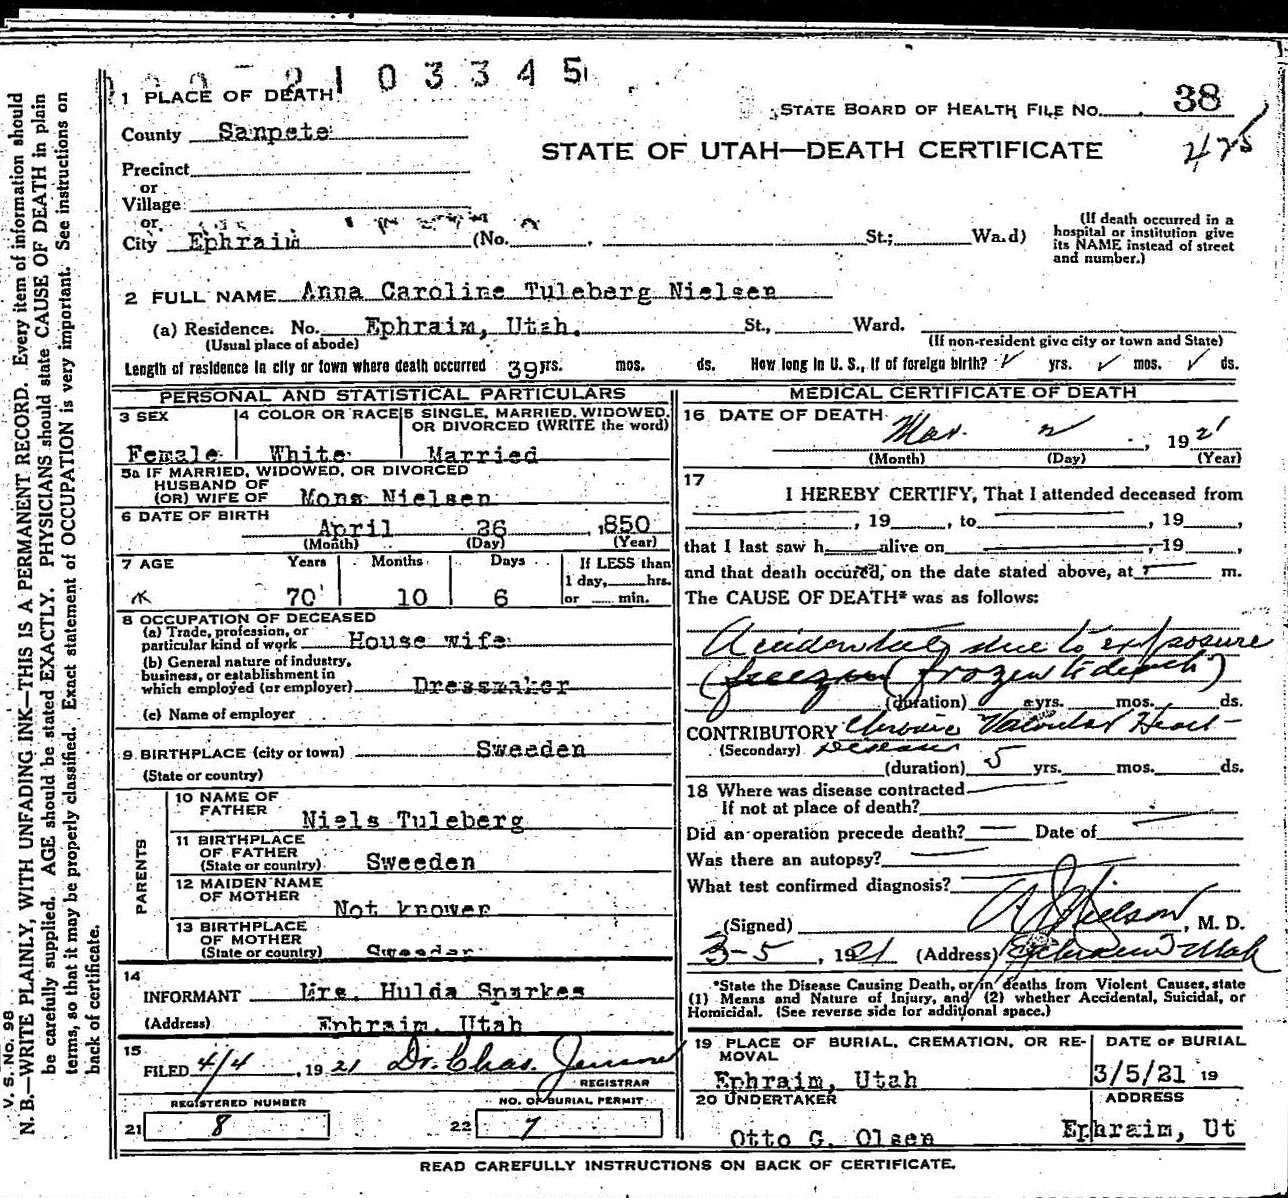 2103345
1 PLACE OF DEATH
STATE BOARD OF HEALTH FILE No. 38
425
County Sanpete
STATE OF UTAH—DEATH CERTIFICATE
Precinct
or
Village
or
City Ephraim (No. , St.; Wa.d)
(If death occurred in a
hospital or institution give
its NAME instead of street
and number.)
2 FULL NAME Anna Caroline Tuleberg Nielsen
(a) Residence. No. Ephraim, Utah. St., Ward.
(Usual place of abode) (If non-resident give city or town and State)
Length of residence in city or town where death occurred 39 yrs. mos. ds. How long in U. S., if of foreign birth? yrs. mos. ds.
PERSONAL AND STATISTICAL PARTICULARS
3 SEX
Female
4 COLOR OR RACE
White
5 SINGLE, MARRIED, WIDOWED,
OR DIVORCED (WRITE the word)
Married
5a IF MARRIED, WIDOWED, OR DIVORCED
HUSBAND OF
(OR) WIFE OF Mons Nielsen
6 DATE OF BIRTH
April 26, 1850
(Month) (Day) (Year)
7 AGE Years Months Days If LESS than
1 day, hrs.
70 10 6 or min.
8 OCCUPATION OF DECEASED
(a) Trade, profession, or
particular kind of work House wife
(b) General nature of industry,
business, or establishment in
which employed (or employer) Dressmaker
(c) Name of employer
9 BIRTHPLACE (city or town) Sweeden
(State or country)
PARENTS
10 NAME OF
FATHER Niels Tuleberg
11 BIRTHPLACE
OF FATHER
(State or country) Sweeden
12 MAIDEN NAME
OF MOTHER Not knower
13 BIRTHPLACE
OF MOTHER
(State or country) Sweeden
14
INFORMANT Mrs. Hulda Sparkes
(Address) Ephraim, Utah
15
FILED 4/4, 1921 Dr. Chas.
REGISTRAR
REGISTERED NUMBER NO. OF BURIAL PERMIT
21 8 22 7
MEDICAL CERTIFICATE OF DEATH
16 DATE OF DEATH
Mar. 2, 1921
(Month) (Day) (Year)
17
I HEREBY CERTIFY, That I attended deceased from
, 19 , to , 19 ,
that I last saw h alive on , 19 ,
and that death occured, on the date stated above, at m.
The CAUSE OF DEATH* was as follows:
Accidentally due to exposure
(freezon (frozen to death)
(duration) yrs. mos. ds.
CONTRIBUTORY Chronic Valvular Heart
(Secondary) Disease
(duration) 5 yrs. mos. ds.
18 Where was disease contracted
if not at place of death?
Did an operation precede death? Date of
Was there an autopsy?
What test confirmed diagnosis?
(Signed) Nielson, M. D.
3-5, 1921 (Address) Ephraim Utah
*State the Disease Causing Death, or in deaths from Violent Causes, state
(1) Means and Nature of Injury, and (2) whether Accidental, Suicidal, or
Homicidal. (See reverse side for additional space.)
19 PLACE OF BURIAL, CREMATION, OR RE-
MOVAL
Ephraim, Utah
DATE OF BURIAL
3/5/21 19
20 UNDERTAKER
Otto C. Olsen
ADDRESS
Ephraim, Ut
READ CAREFULLY INSTRUCTIONS ON BACK OF CERTIFICATE.
V. S. No. 98
N. B.—WRITE PLAINLY, WITH UNFADING INK—THIS IS A PERMANENT RECORD. Every item of information should
be carefully supplied. AGE should be stated EXACTLY. PHYSICIANS should state CAUSE OF DEATH in plain
terms, so that it may be properly classified. Exact statement of OCCUPATION is very important. See instructions on
back of certificate.